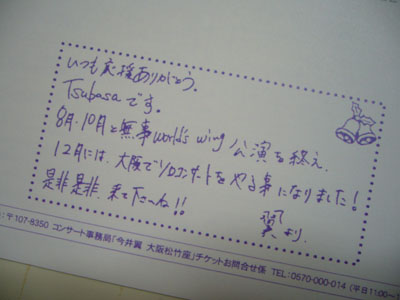 いつも応援ありがとう。
Tsubasaです。
8月・10月と無事world's wing 公演を終え、
12月には、大阪でソロコンサートをやる事になりました！
是非是非 来て下さいね!!
翼より
〒107-8350 コンサート事務局「今井翼 大阪松竹座」チケットお問合せ係 TEL:0570-000-014 (平日11:00〜